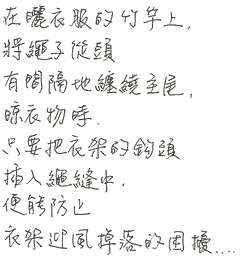 在曬衣服的竹竿上,
將繩子從頭
有間隔地纏繞至尾,
晾衣物時,
只要把衣架的鉤頭
插入繩縫中,
便能防止
衣架迎風掉落的困擾....